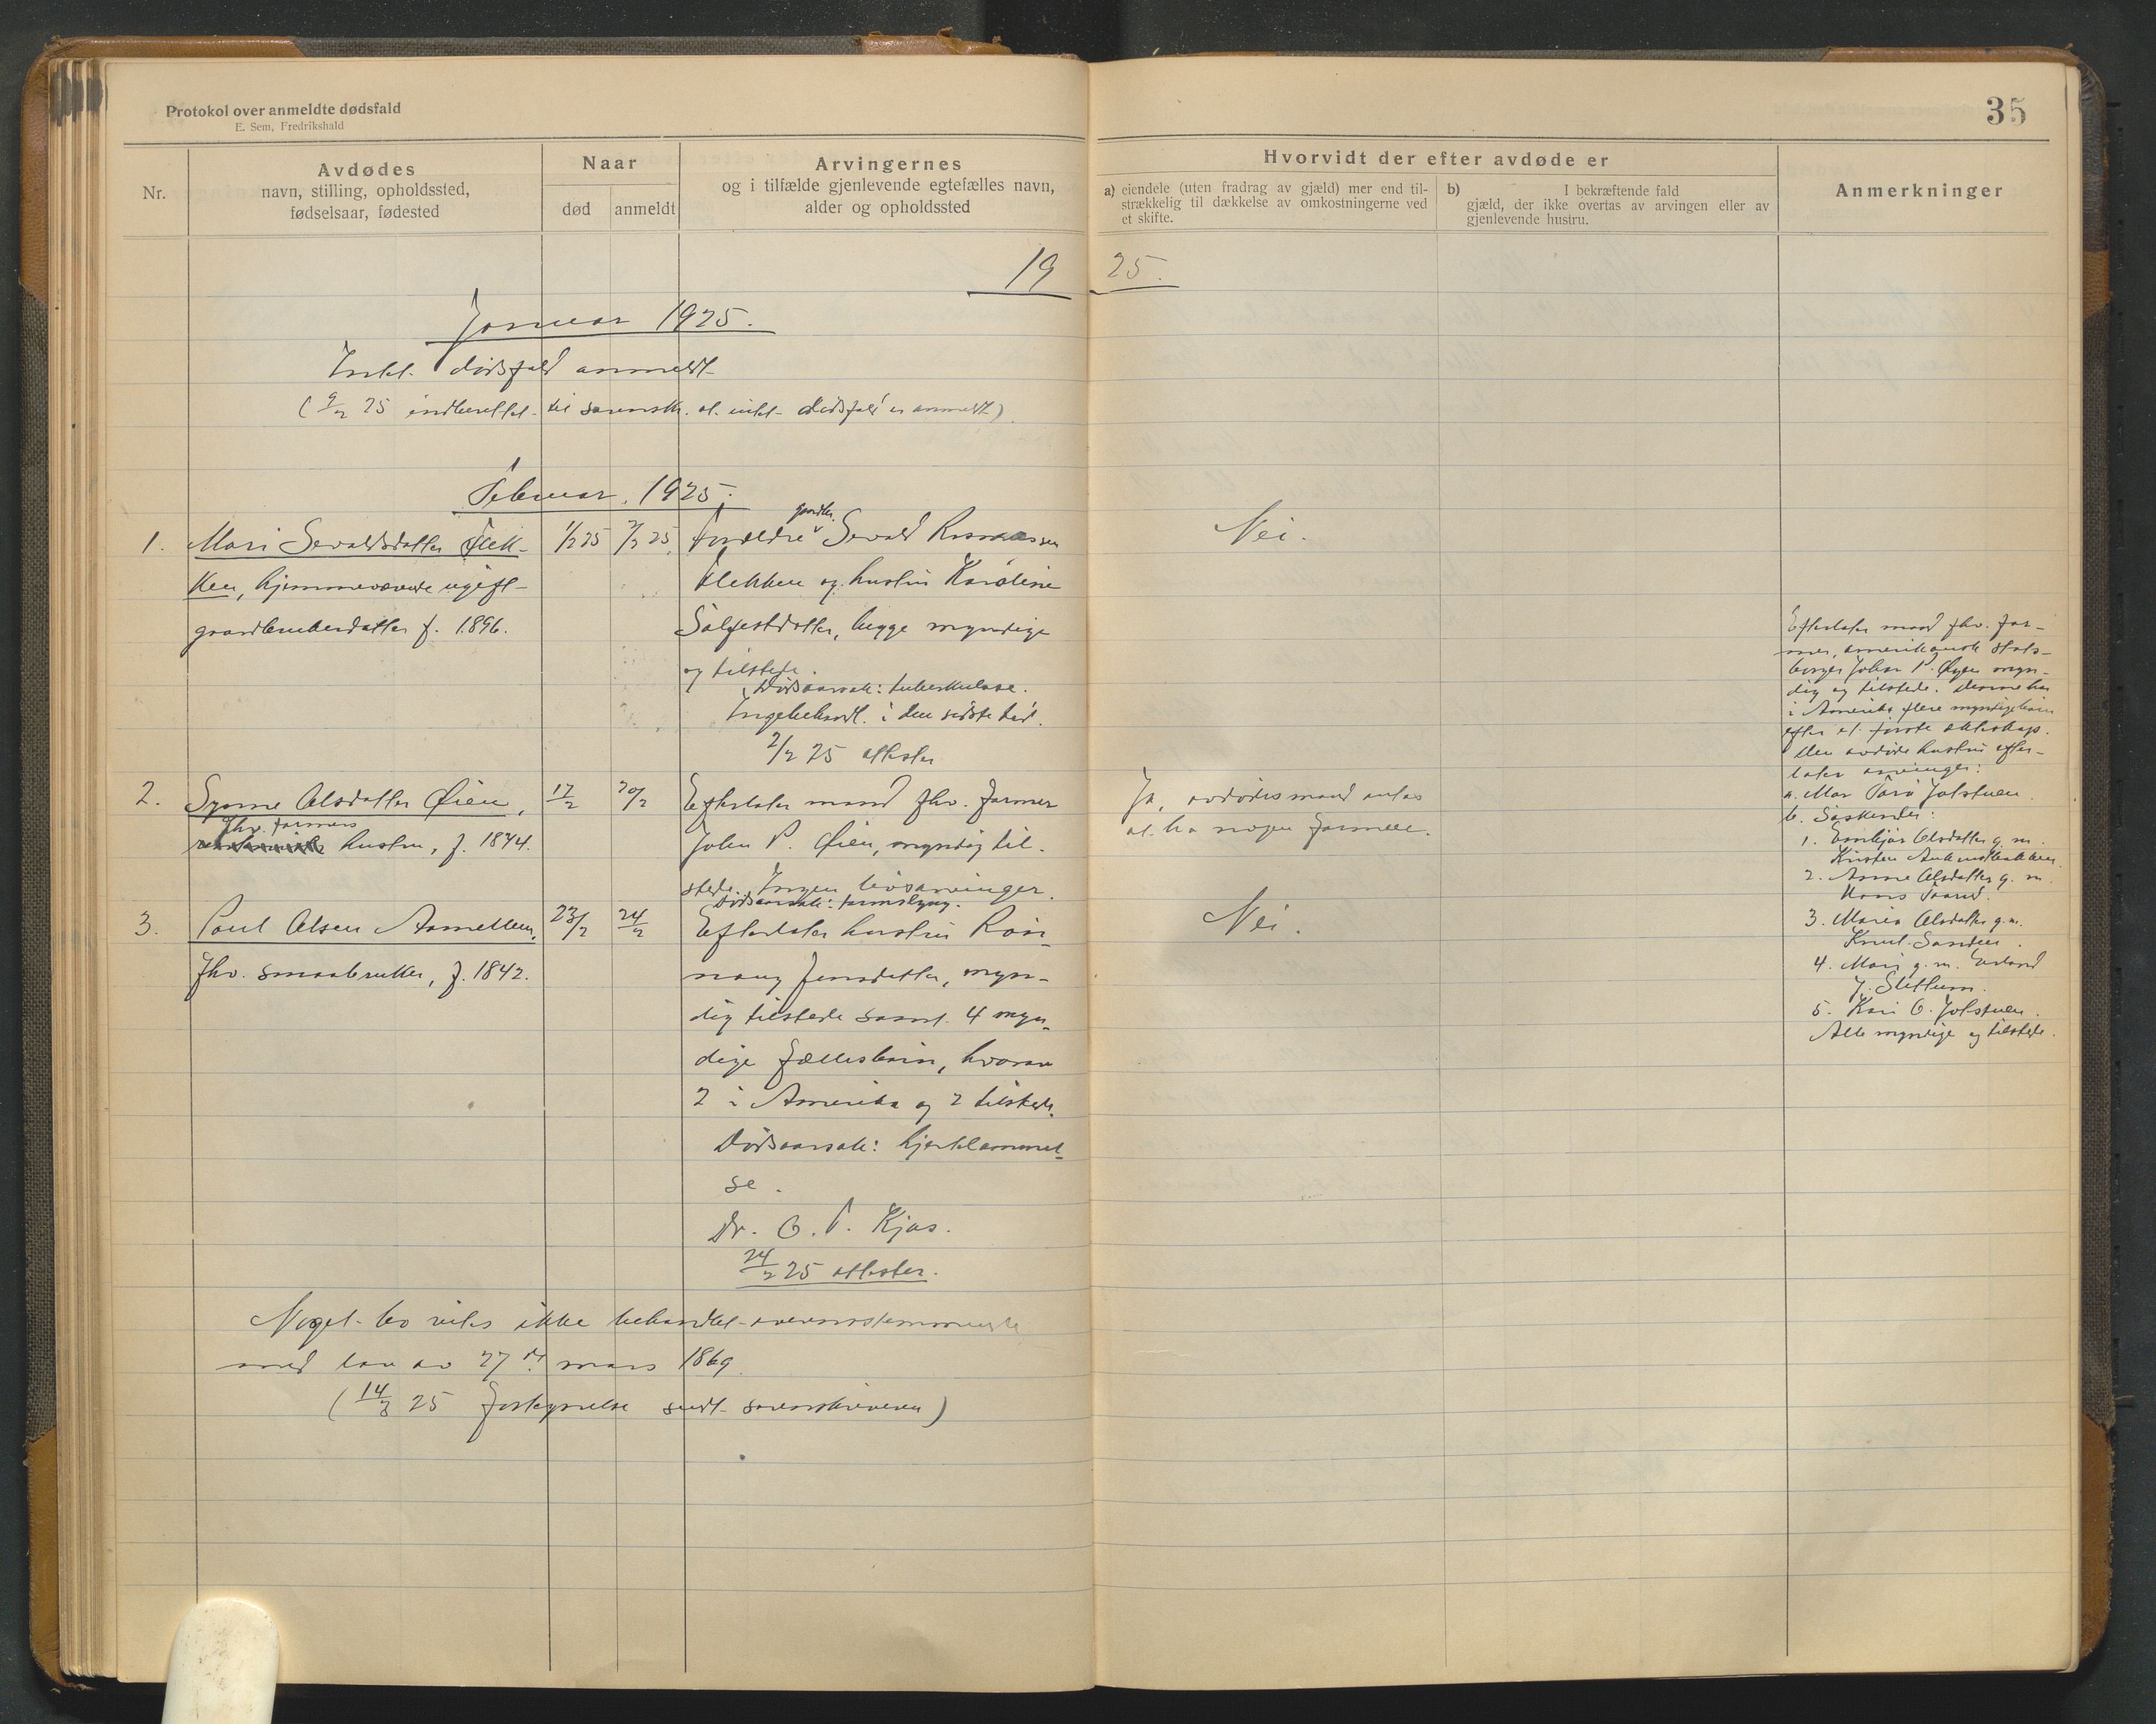 Protokol over anmeldte dødsfald
E. Sem, Fredrikshald
35
Nr.
Avdødes
navn, stilling, opholdssted,
fødselsaar, fødested
Naar
død
anmeldt
Arvingernes
og i tilfælde gjenlevende egtefælles navn,
alder og opholdssted
Hvorvidt der efter avdøde er
a) eiendele (uten fradrag av gjæld) mer end til-
strækkelig til dækkelse av omkostningerne ved
et skifte.
b) I bekræftende fald
gjæld, der ikke overtas av arvingen eller av
gjenlevende hustru.
Anmerkninger
1925.
Januar 1925.
Intet dødsfald anmeldt
(9/2 25 indberettet til sorensk. at intet dødsfald er anmeldt)
Februar 1925.
1. Mari Sevaldsdatter Flek-
ken, hjemmeværende ugift
gaardbrukerdatter f. 1896.
1/2 25
2/2 25
gaardbr.
Forældre Sevald Rasmussen
Flekken og hustru Karoline
Salfestdatter, begge myndige
og tilstede.
Dødsaarsak: tuberkulose.
Ingen behandl. i den sidste tid.
2/2 25 attester
Nei.
2. Synne Olsdatter Øien,
fhv. farmers
hustru, f. 1844.
17/2
20/2
Efterlater mand fhv. farmer
John P. Øien, myndig til-
stede. Ingen livsarvinger.
Dødsaarsak:
Ja, avdødes mand antas
at ha nogen formue.
Efterlater mand fhv. far-
mer, amerikansk stats-
borger Johan P. Øyen myn-
dig og tilstede. Denne har
i Amerika flere myndige barn
efter et første ekteskap.
Den avdøde hustru efter-
later arvinger:
a. Mor Jolstuen
b. Søskende:
1. Olsdatter g. m.
Kristen
2. Anne Olsdatter g. m.
Hans
3. Maria Olsdatter g. m.
Knut Sanden.
4. Mari g. m. Erland
J. Slettum.
5. Kari O. Jolstuen.
Alle myndige og tilstede.
3. Paul Olsen
fhv. smaabruker, f. 1842.
23/2
24/2
Efterlater hustru Røn-
naug Jensdatter, myn-
dig tilstede samt 4 myn-
dige fællesbarn, hvorav
2 i Amerika og 2 tilstede.
Dødsaarsak: hjertelammel-
se.
Dr. O. P. Kjos.
24/2 25 attester.
Nei.
Noget bo vites ikke behandlet overensstemmende
med lov av 27de mars 1869.
(14/3 25 fortegnelse sendt sorenskriveren)